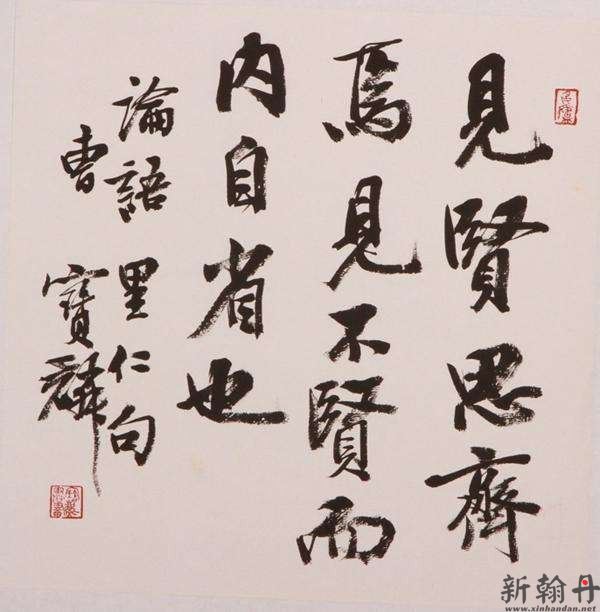 見賢思齊
焉見不賢而
内自省也
論語里仁句
曹寶麟
新翰丹
www.xinhandan.net